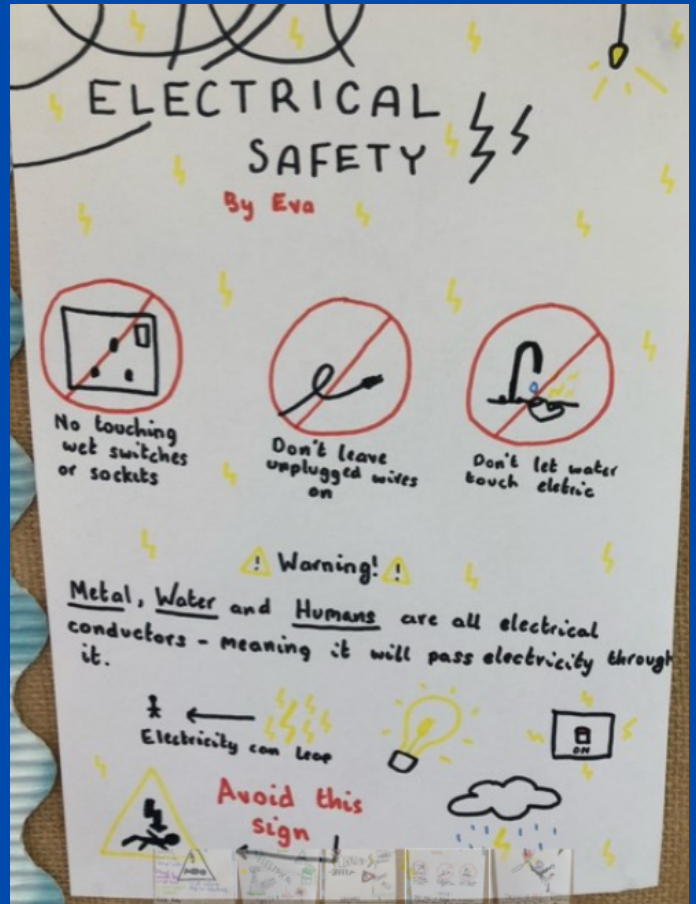 ELECTRICAL
SAFETY
By Eva
No touching
wet switches
or sockets
Don't leave
unplugged wires
on
Don't let water
touch eletric
Warning!
Metal, Water and Humans are all electrical
conductors - meaning it will pass electricity through
it.
Electricity can leap
ON
Avoid this
sign